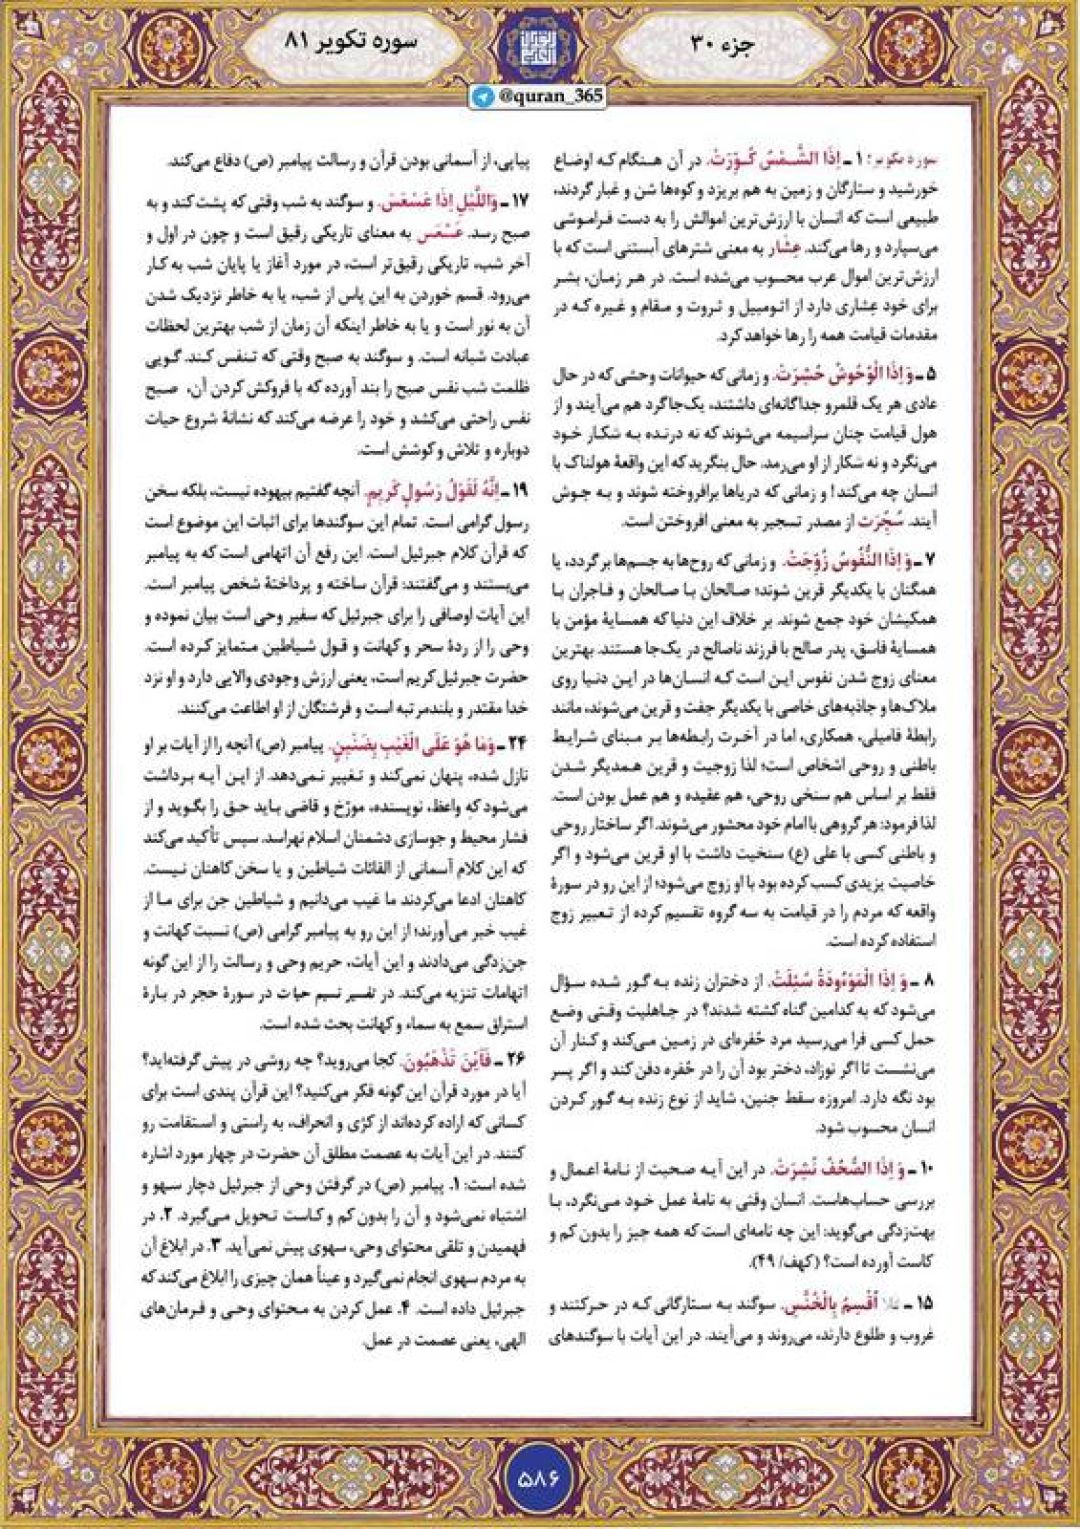 جزء ۳۰
سوره تکویر ۸۱
@quran_365
سوره تکویر: ۱ ـ اِذَا الشَّمْسُ کُوِّرَتْ. در آن هنگام که اوضاع
خورشید و ستارگان و زمین به هم بریزد و کوه‌ها شن و غبار گردند،
طبیعی است که انسان با ارزش‌ترین اموالش را به دست فراموشی
می‌سپارد و رها می‌کند. عِشار به معنی شترهای آبستنی است که با
ارزش‌ترین اموال عرب محسوب می‌شده است. در هر زمان، بشر
برای خود عِشاری دارد از اتومبیل و ثروت و مقام و غیره که در
مقدمات قیامت همه را رها خواهد کرد.
۵ ـ وَ اِذَا الْوُحُوشُ حُشِرَتْ. و زمانی که حیوانات وحشی که در حال
عادی هر یک قلمرو جداگانه‌ای داشتند، یک‌جا گرد هم می‌آیند و از
هول قیامت چنان سراسیمه می‌شوند که نه درنده به شکار خود
می‌نگرد و نه شکار از او می‌رمد. حال بنگرید که این واقعهٔ هولناک با
انسان چه می‌کند! و زمانی که دریاها برافروخته شوند و به جوش
آیند. سُجِّرَت از مصدر تسجیر به معنی افروختن است.
۷ ـ وَ اِذَا النُّفُوسُ زُوِّجَتْ. و زمانی که روح‌ها به جسم‌ها بر گردد، یا
همگنان با یکدیگر قرین شوند؛ صالحان با صالحان و فاجران با
همکیشان خود جمع شوند. بر خلاف این دنیا که همسایهٔ مؤمن با
همسایهٔ فاسق، پدر صالح با فرزند ناصالح در یک‌جا هستند. بهترین
معنای زوج شدن نفوس این است که انسان‌ها در این دنیا روی
ملاک‌ها و جاذبه‌های خاصی با یکدیگر جفت و قرین می‌شوند، مانند
رابطهٔ فامیلی، همکاری، اما در آخرت رابطه‌ها بر مبنای شرایط
باطنی و روحی اشخاص است؛ لذا زوجیت و قرین همدیگر شدن
فقط بر اساس هم سنخی روحی، هم عقیده و هم عمل بودن است.
لذا فرمود: هر گروهی با امام خود محشور می‌شوند. اگر ساختار روحی
و باطنی کسی با علی (ع) سنخیت داشت با او قرین می‌شود و اگر
خاصیت یزیدی کسب کرده بود با او زوج می‌شود؛ از این رو در سورهٔ
واقعه که مردم را در قیامت به سه گروه تقسیم کرده از تعبیر زوج
استفاده کرده است.
۸ ـ وَ اِذَا الْمَوْءُودَةُ سُئِلَتْ. از دختران زنده به گور شده سؤال
می‌شود که به کدامین گناه کشته شدند؟ در جاهلیت وقتی وضع
حمل کسی فرا می‌رسید مرد حُفره‌ای در زمین می‌کند و کنار آن
می‌نشست تا اگر نوزاد، دختر بود آن را در حُفره دفن کند و اگر پسر
بود نگه دارد. امروزه سقط جنین، شاید از نوع زنده به گور کردن
انسان محسوب شود.
۱۰ ـ وَ اِذَا الصُّحُفُ نُشِرَتْ. در این آیه صحبت از نامهٔ اعمال و
بررسی حساب‌هاست. انسان وقتی به نامهٔ عمل خود می‌نگرد، با
بهت‌زدگی می‌گوید: این چه نامه‌ای است که همه چیز را بدون کم و
کاست آورده است؟ (کهف/ ۴۹).
۱۵ ـ فَلا اُقْسِمُ بِالْخُنَّسِ. سوگند به ستارگانی که در حرکتند و
غروب و طلوع دارند، می‌روند و می‌آیند. در این آیات با سوگندهای
پیاپی، از آسمانی بودن قرآن و رسالت پیامبر (ص) دفاع می‌کند.
۱۷ ـ وَاللَّیْلِ اِذَا عَسْعَسَ. و سوگند به شب وقتی که پشت کند و به
صبح رسد. عَسْعَس به معنای تاریکی رقیق است و چون در اول و
آخر شب، تاریکی رقیق‌تر است، در مورد آغاز یا پایان شب به کار
می‌رود. قسم خوردن به این پاس از شب، یا به خاطر نزدیک شدن
آن به نور است و یا به خاطر اینکه آن زمان از شب بهترین لحظات
عبادت شبانه است. و سوگند به صبح وقتی که تنفس کند. گویی
ظلمت شب نفس صبح را بند آورده که با فروکش کردن آن، صبح
نفس راحتی می‌کشد و خود را عرضه می‌کند که نشانهٔ شروع حیات
دوباره و تلاش و کوشش است.
۱۹ ـ اِنَّهُ لَقَوْلُ رَسُولٍ کَرِیمٍ. آنچه گفتیم بیهوده نیست، بلکه سخن
رسول گرامی است. تمام این سوگندها برای اثبات این موضوع است
که قرآن کلام جبرئیل است. این رفع آن اتهامی است که به پیامبر
می‌بستند و می‌گفتند: قرآن ساخته و پرداختهٔ شخص پیامبر است.
این آیات اوصافی را برای جبرئیل که سفیر وحی است بیان نموده و
وحی را از ردهٔ سحر و کهانت و قول شیاطین متمایز کرده است.
حضرت جبرئیل کریم است، یعنی ارزش وجودی والایی دارد و او نزد
خدا مقتدر و بلندمرتبه است و فرشتگان از او اطاعت می‌کنند.
۲۴ ـ وَمَا هُوَ عَلَی الْغَیْبِ بِضَنِینٍ. پیامبر (ص) آنچه را از آیات بر او
نازل شده، پنهان نمی‌کند و تغییر نمی‌دهد. از این آیه برداشت
می‌شود که واعظ، نویسنده، مورّخ و قاضی باید حق را بگوید و از
فشار محیط و جوسازی دشمنان اسلام نهراسد. سپس تأکید می‌کند
که این کلام آسمانی از القائات شیاطین و یا سخن کاهنان نیست.
کاهنان ادعا می‌کردند ما غیب می‌دانیم و شیاطین جن برای ما از
غیب خبر می‌آورند؛ از این رو به پیامبر گرامی (ص) نسبت کهانت و
جن‌زدگی می‌دادند و این آیات، حریم وحی و رسالت را از این گونه
اتهامات تنزیه می‌کند. در تفسیر نسیم حیات در سورهٔ حجر در بارهٔ
استراق سمع به سماء و کهانت بحث شده است.
۲۶ ـ فَاَیْنَ تَذْهَبُونَ. کجا می‌روید؟ چه روشی در پیش گرفته‌اید؟
آیا در مورد قرآن این گونه فکر می‌کنید؟ این قرآن پندی است برای
کسانی که اراده کرده‌اند از کژی و انحراف، به راستی و استقامت رو
کنند. در این آیات به عصمت مطلق آن حضرت در چهار مورد اشاره
شده است: ۱. پیامبر (ص) در گرفتن وحی از جبرئیل دچار سهو و
اشتباه نمی‌شود و آن را بدون کم و کاست تحویل می‌گیرد. ۲. در
فهمیدن و تلقی محتوای وحی، سهوی پیش نمی‌آید. ۳. در ابلاغ آن
به مردم سهوی انجام نمی‌گیرد و عیناً همان چیزی را ابلاغ می‌کند که
جبرئیل داده است. ۴. عمل کردن به محتوای وحی و فرمان‌های
الهی، یعنی عصمت در عمل.
۵۸۶